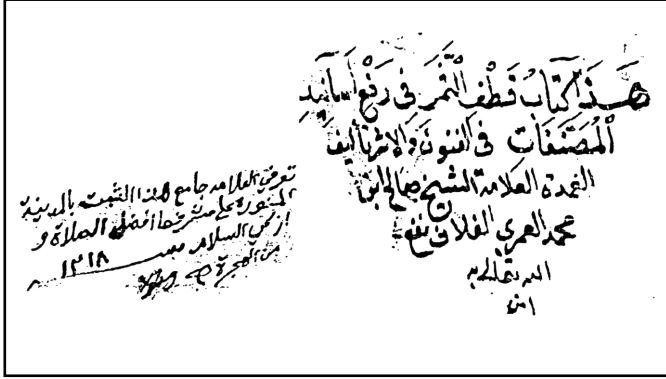 هــذا كتاب قطف الثمر في رفع أسانيد
المصنفات في الفنون والاثر تأليف
العمدة العلامة الشيخ صالح ابن
محمد العمري الفلاني نفع
الله تعالى به
امين
توفي العلامه جامع هذا الثبت بالمدينه
المنورة على مشرفها افضل الصلاة و
ازكى السلام سنــــة ١٢١٨
من الهجرة